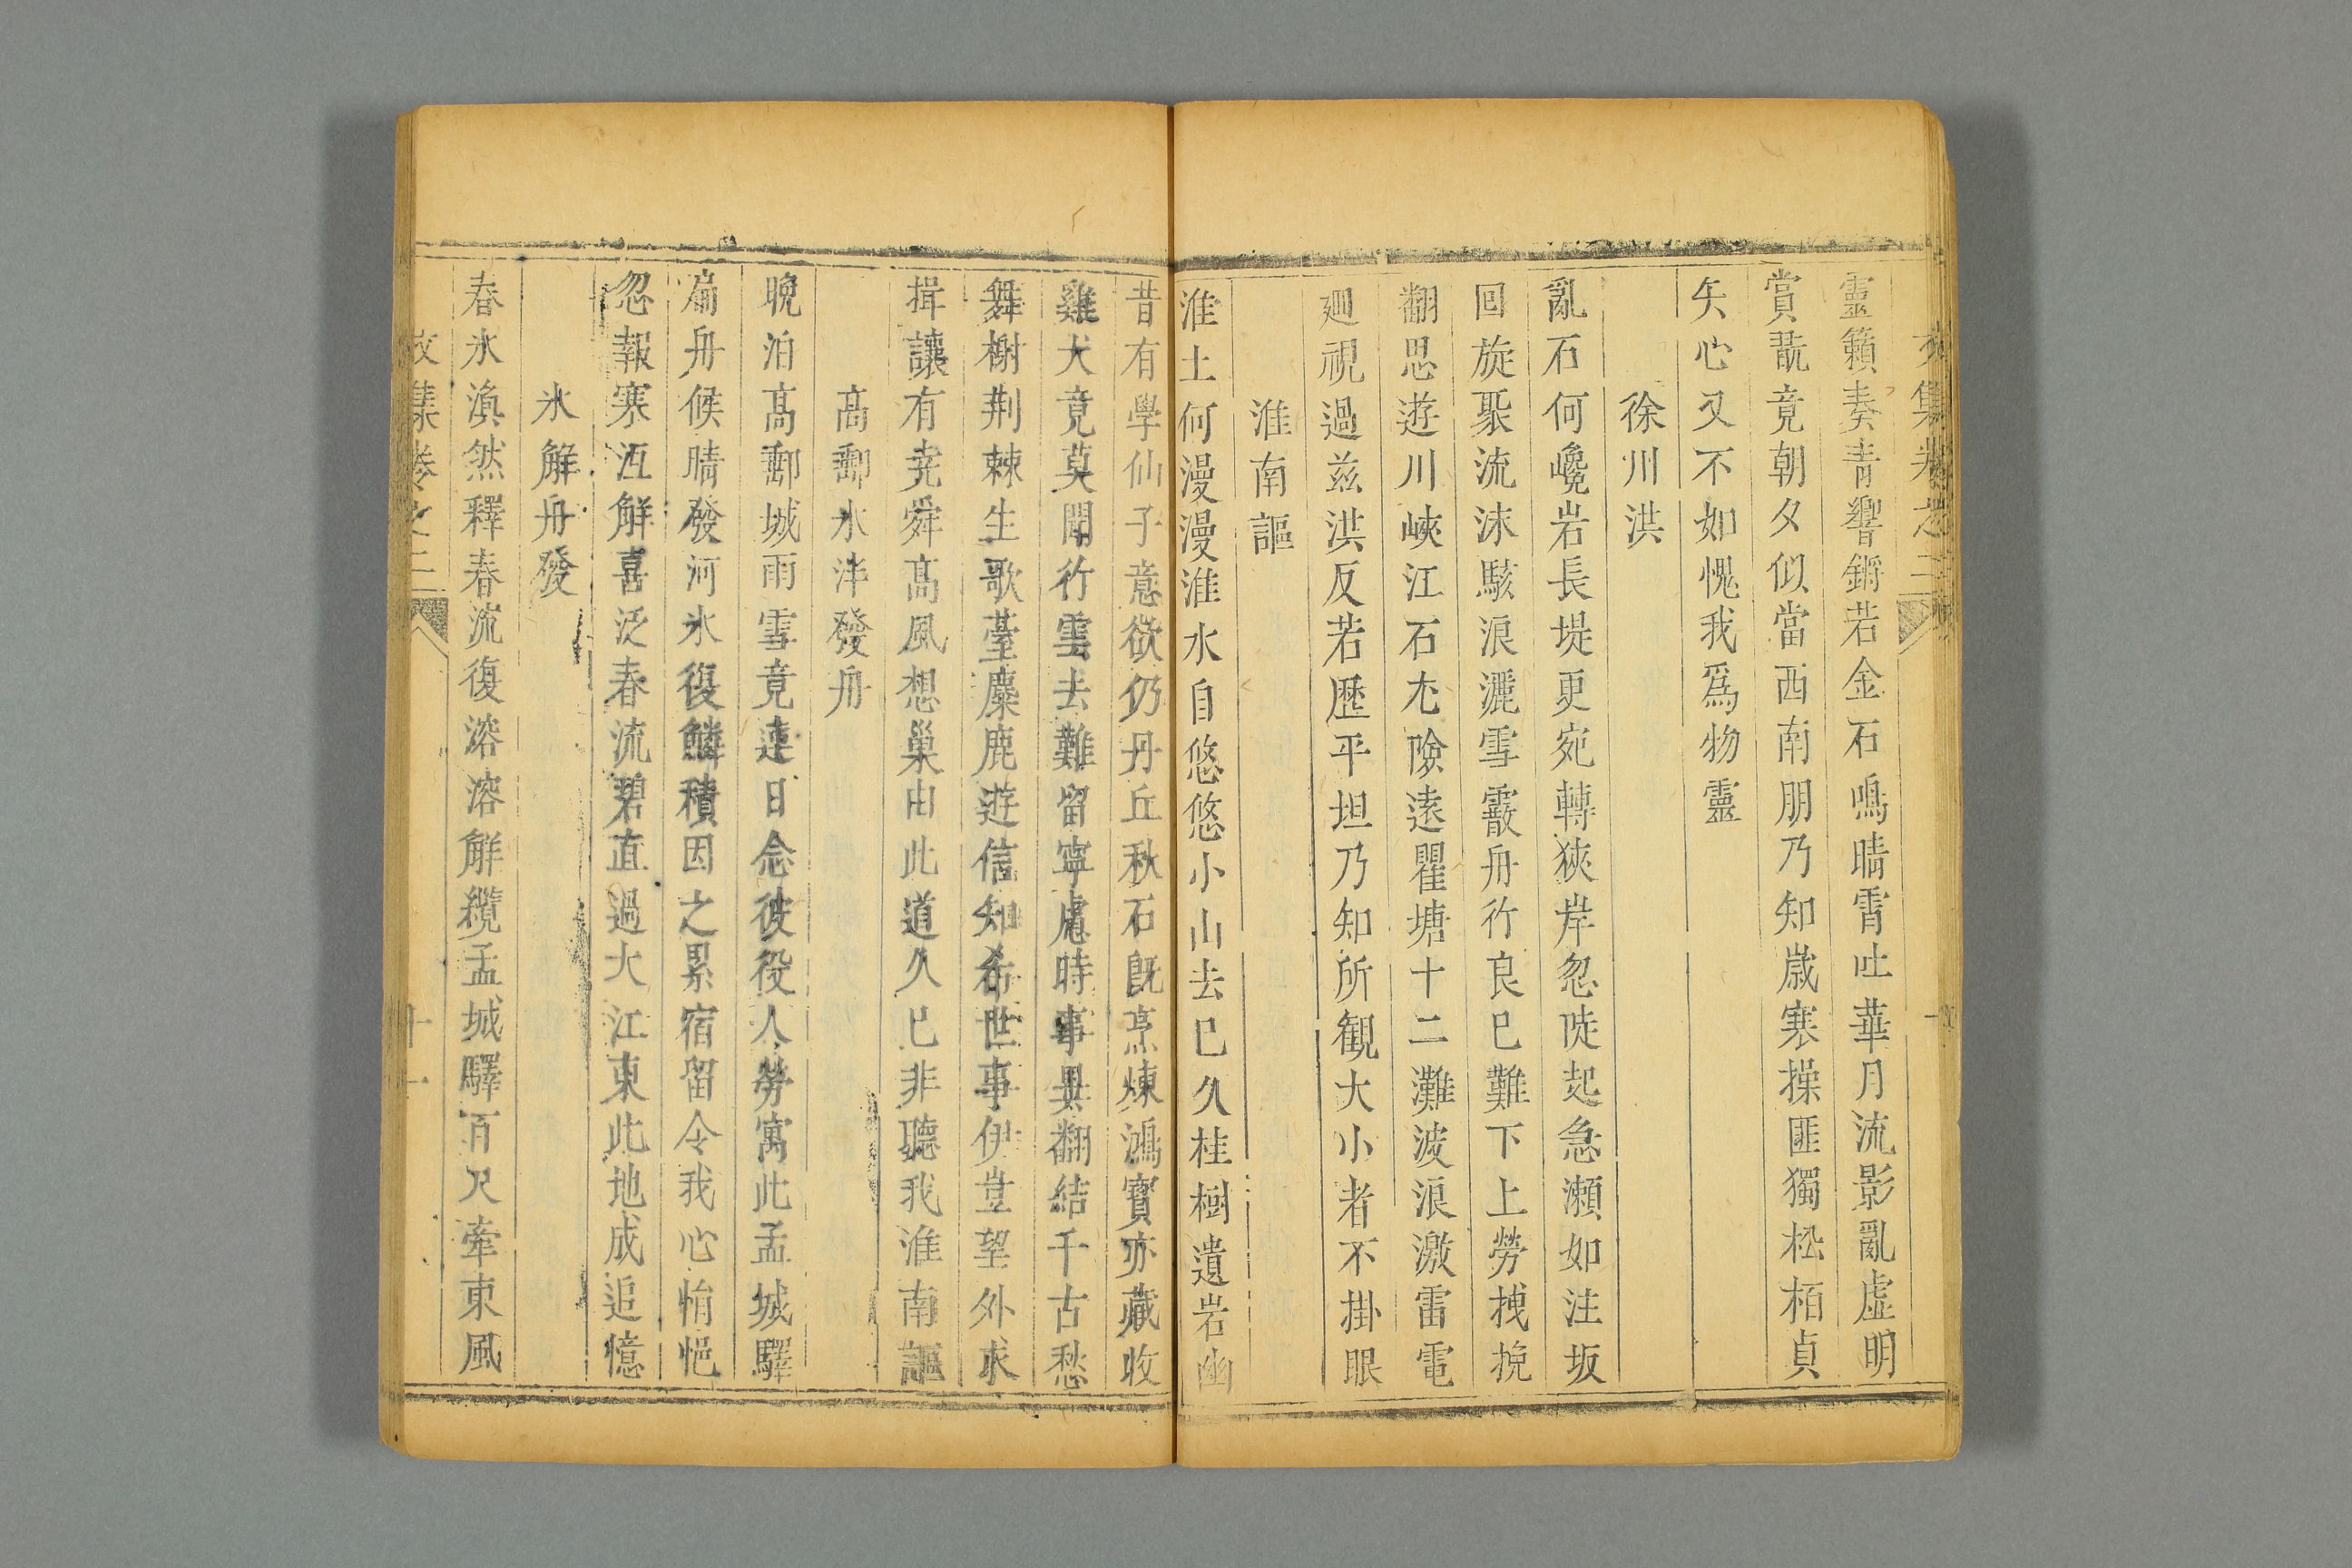 靈籟奏青響鏘若金石鳴晴霄吐華月流影亂虛明
賞翫竟朝夕似當西南朋乃知歲寒操匪獨松栢貞
矢心又不如愧我爲物靈
徐川洪
亂石何巉岩長堤更宛轉狹岸忽陡起急瀬如注坂
回旋聚流沫駭浪灑雪霰舟行良巳難下上勞拽挽
翻思遊川峽江石尢險逺瞿塘十二灘波浪激雷電
廻視過兹洪反若歷平坦乃知所観大小者不掛眼
淮南謳
淮土何漫漫淮水自悠悠小山去巳久桂樹遺岩幽
昔有學仙子意欲仍丹丘秋石旣烹煉鴻寳亦藏收
雞犬竟莫聞行雲去難留寧慮時事異翻結千古愁
舞榭荆棘生歌薹麋鹿遊信知希世事伊豈望外求
揖讓有尭舜髙風想巢由此道久巳非聽我淮南謳
髙郵氷泮發舟
晩泊髙郵城雨雪竟連日念彼役人勞寓此孟城驛
扁舟候晴發河氷復鱗積因之累宿留令我心悁悒
忽報寒沍解喜泛春流碧直過大江東此地成追憶
氷解舟發
春氷渙然釋春流復溶溶解纜孟城驛百尺牽東風
文集卷之二
十一